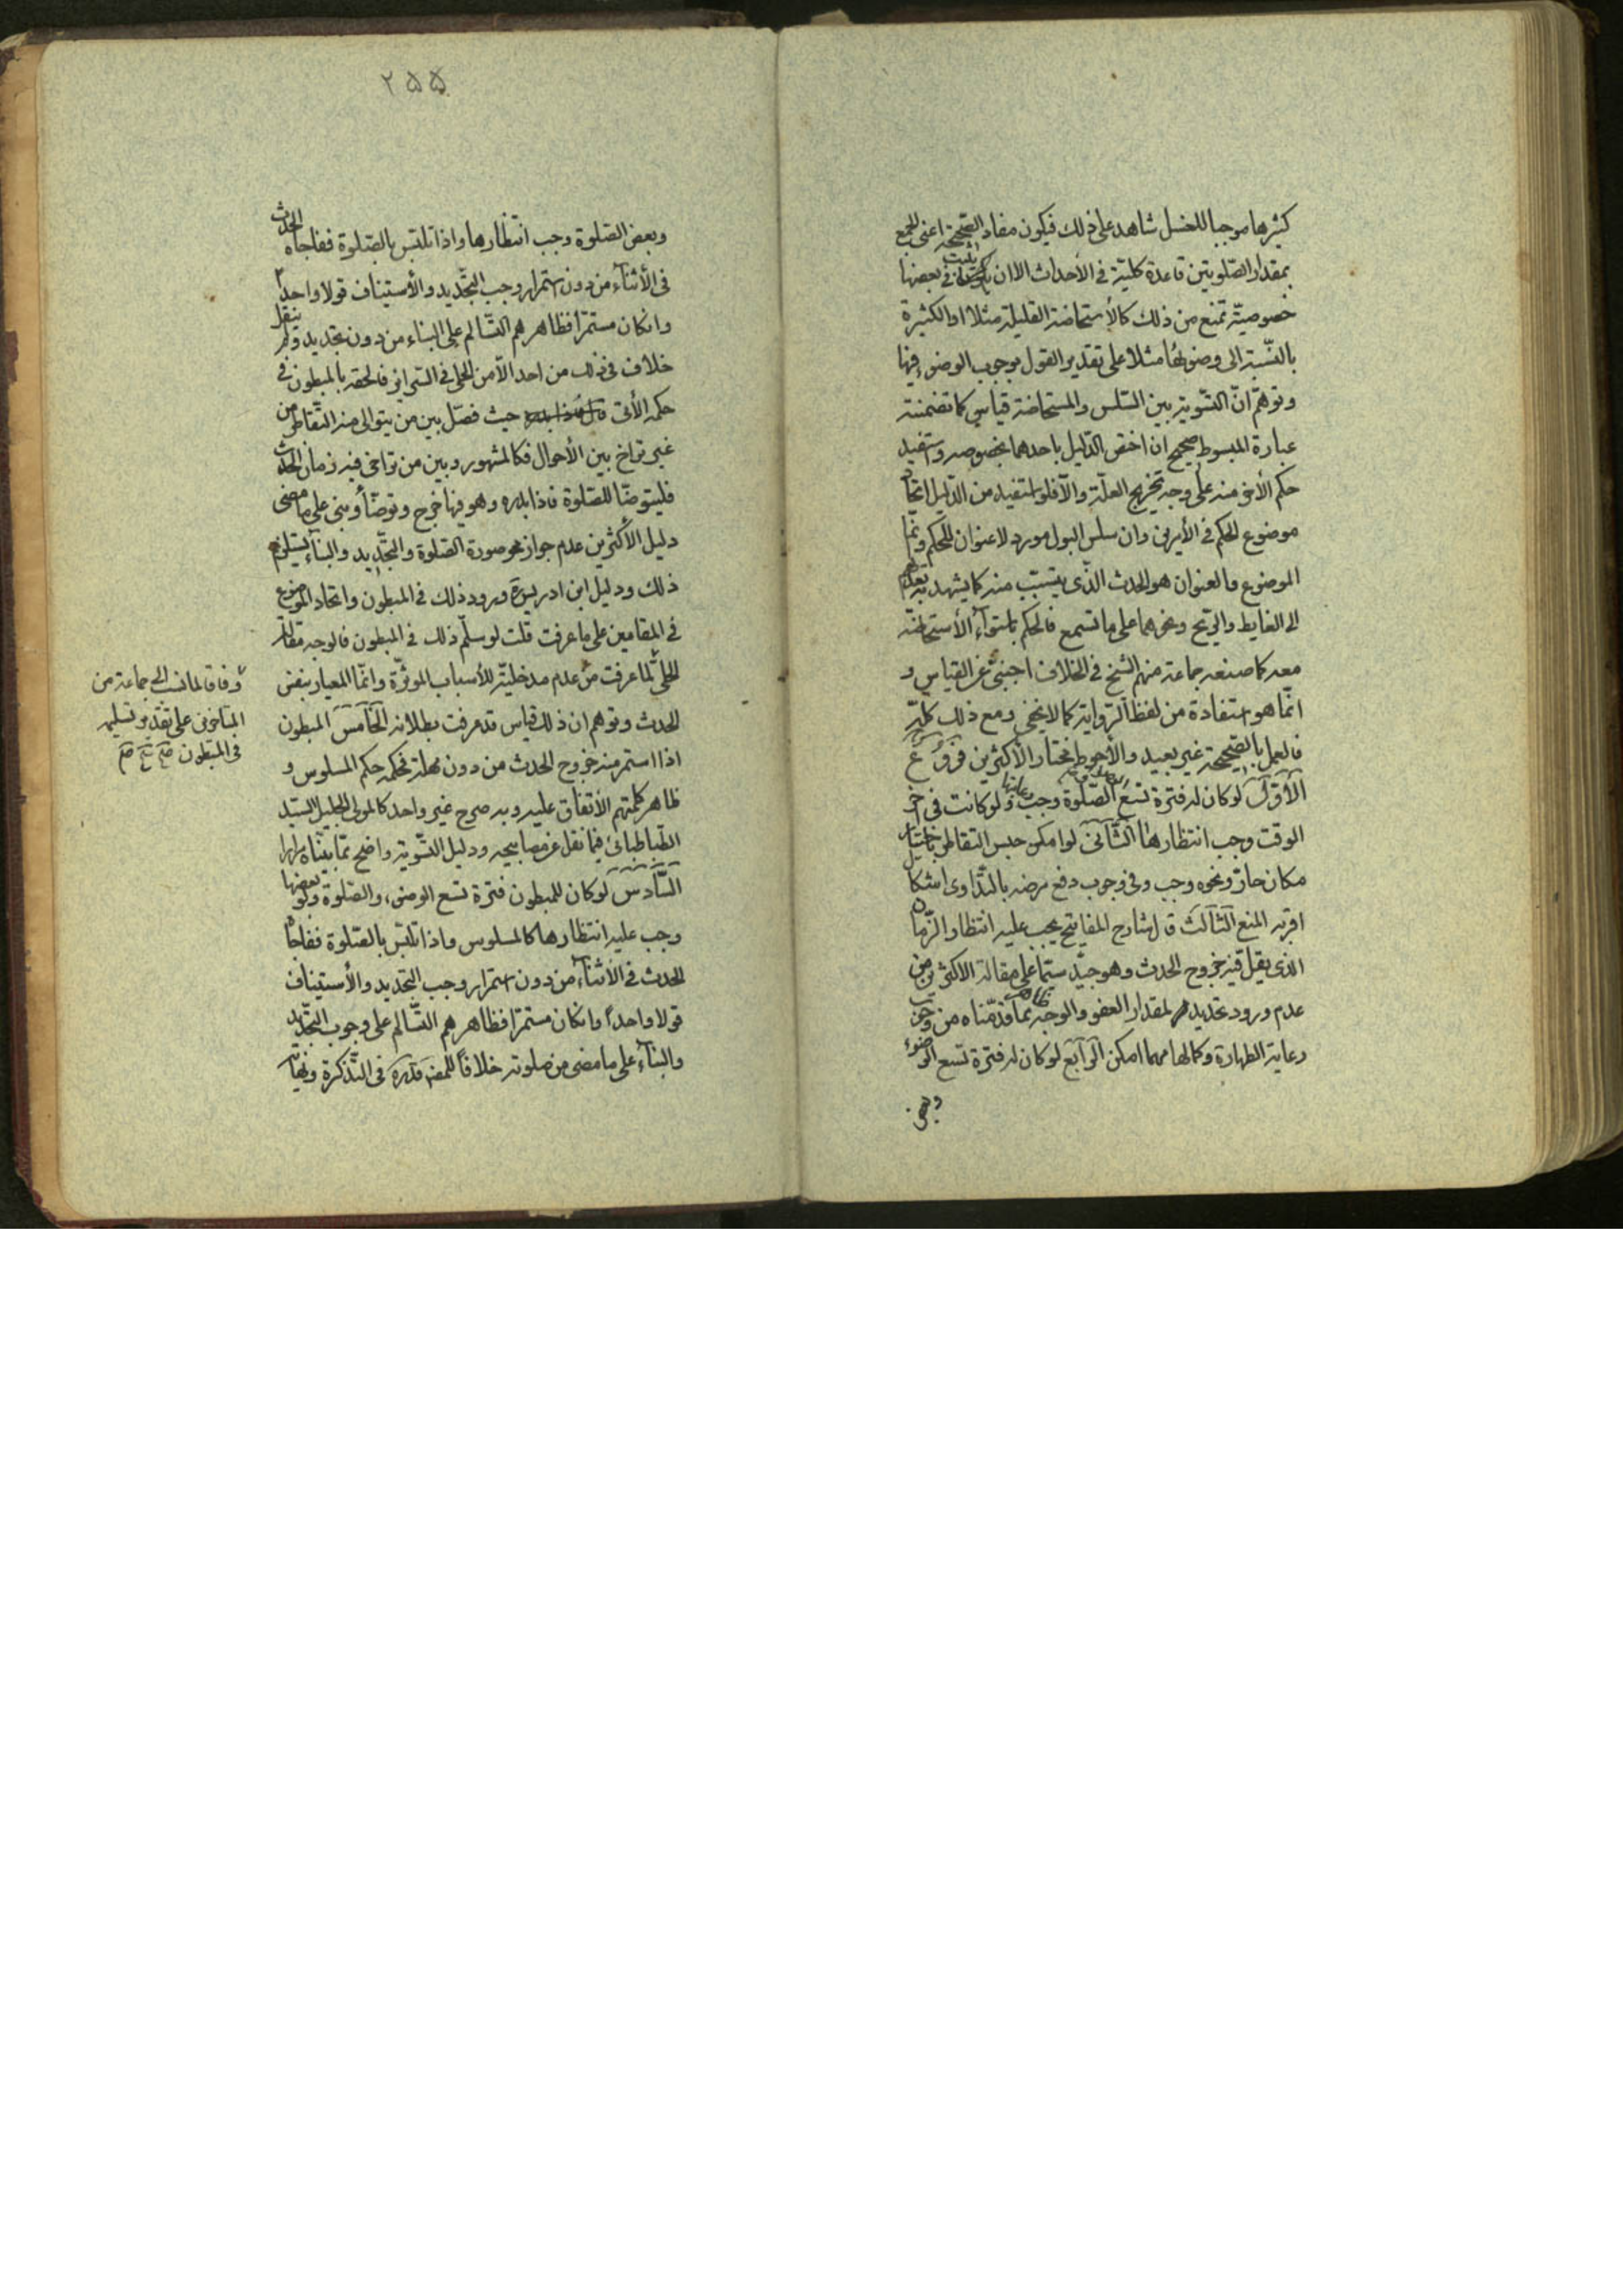 كثيرها موجبا للغسل شاهد على ذلك فيكون مفاد الصّحيحة اعنى الجمع
بمقدار الصّلوتين قاعدة كليّة فى الأحداث الا ان يثبت فى بعضها
خصوصيّة تمنع من ذلك كالأستحاضة القليلة مثلا او الكثيرة
بالنّسبة الى وضوئها مثلا على تقدير القول بوجوب الوضوء فيها
وتوهّم انّ التسّوية بين السّلس والمستحاضة قياس كما تضمنته
عبارة المبسوط صحيح ان اختص الدّليل باحدهما بخصوصه واستفيد
حكم الأخر منه على وجه تخريج العلّة والّا فلو استفيد من الدّليل اتحاد
موضوع الحكم فى الأمرين وان سلس البول مورد لا عنوان للحكم وانّما
الموضوع والعنوان هو الحدث الّذى يتسبّب منه كما يشهد به تعدّيهم
الى الغايط والرّيح ونحوهما على ما تسمع فالحكم باستوآء الأستحاضة
معه كما صنعه جماعة منهم الشّيخ فى الخلاف اجنبىّ عن القياس و
انّما هو استفادة من لفظ الرّواية كما لا يخفى ومع ذلك كلّه
فالعمل بالصّحيحة غير بعيد والأحوط مختار الأكثرين فروع
الأوّل لو كان له فترة تسع الصّلوة وجب ولو كانت فى اخر
الوقت وجب انتظارها الثّانى لو امكن حبس التقاطر باختيار
مكان حارّ ونحوه وجب وفى وجوب دفع مرضه بالتّداوى اشكال
اقربه المنع الثالث قال شارح المفاتيح يجب عليه انتظار الزّمان
الذى يقل فيه خروج الحدث وهو جيّد سيّما على مقالة الاكثرين من
عدم ورود تحديد لمقدار العفو والوجه ظاهر ممّا قدّمناه من وجوب
رعاية الطهارة وكمالها مهما امكن الرّابع لو كان له فترة تسع الوضوء
وبعض
۲۵۵
وبعض الصّلوة وجب انتظارها واذا تلبّس بالصّلوة ففاجاه الحدث
فى الأثنآء من دون استمرار وجب التجّديد والأستيناف قولا واحدا
وان كان مستمرّا فظاهرهم التسّالم على البناء من دون تجديد ولم ينقل
خلاف فى ذلك من احد الّا من الحلى فى السّرائر فالحقه بالمبطون فى
حكمه الأتى حيث فصّل بين من يتوالى منه التّقاطر من
غير تراخ بين الأحوال فكالمشهور وبين من تراخى فيه زمان الحدث
فليتوضّا للصّلوة فاذا بدره وهو فيها خرج وتوضّأ وبنى على ما مضى
دليل الأكثرين عدم جواز محو صورة الصّلوة والتجّديد والبنآء يستلزم
ذلك ودليل ابن ادريس ره ورود ذلك فى المبطون واتحاد الموضوع
فى المقامين على ما عرفت قلت لو سلّم ذلك فى المبطون فالوجه مقالة
الحلىّ لما عرفت من عدم مدخليّة للأسباب الموثّرة وانّما المعيار بنفس
الحدث وتوهّم ان ذلك قياس قد عرفت بطلانه الخامس المبطون
اذا استمر منه خروج الحدث من دون مهلة فحكمه حكم المسلوس و
ظاهر كلمتهم الأتفاق عليه وبه صرح غير واحد كالمولى الجليل السّيّد
الطّباطبائى فيما نقل عن مصابيحه ودليل التسّوية واضح ممّا بيّنّاه مرارا
السّادس لو كان للمبطون فترة تسع الوضوء والصّلوة ولو بعضها
وجب عليه انتظارها كالمسلوس واذا تلبّس بالصّلوة ففاجأه
الحدث فى الأثنآء من دون استمرار وجب التّجديد والأستيناف
قولا واحدا وان كان مستمرّا فظاهرهم التسّالم على وجوب التجّديد
والبنآء على ما مضى من صلوته خلافا للعلامة قدّس سرّه فى التّذكرة ونهايته
وفاقا لما نسب الى جماعة من
المتاخرين على تقدير تسليمه
فى المبطون صح صح صح